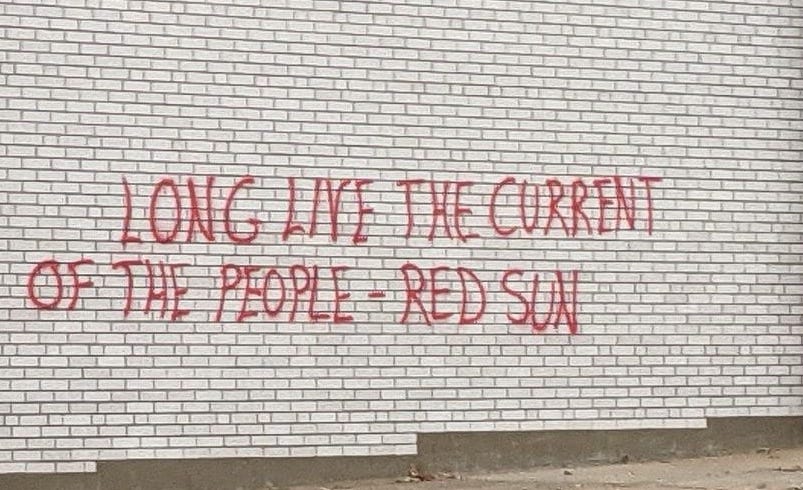 LONG LIVE THE CURRENT
OF THE PEOPLE - RED SUN